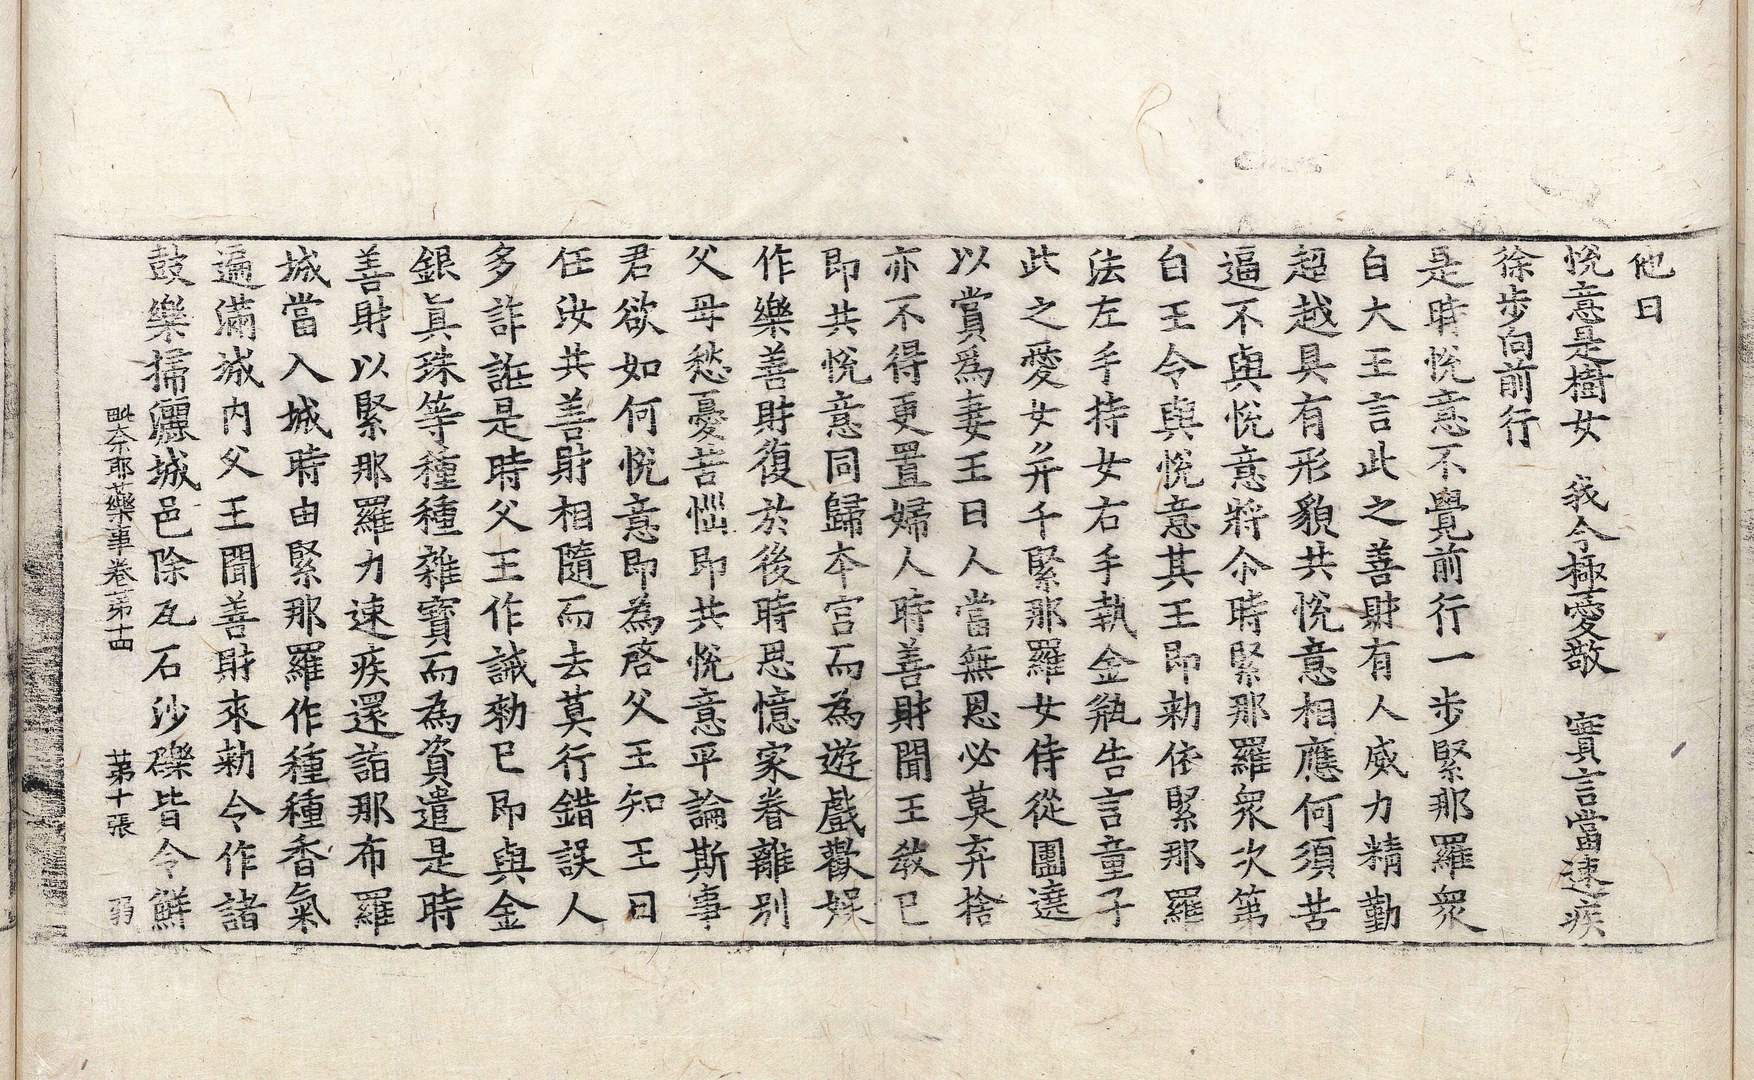 他日
悅意是樹女　我今極愛敬　實言當速疾
徐步向前行
是時悅意不覺前行一步緊那羅衆
白大王言此之善財有人威力精勤
超越具有形貌共悅意相應何須苦
逼不與悅意將尒時緊那羅衆次第
白王令與悅意其王即勑依緊那羅
法左手持女右手執金瓶告言童子
此之愛女女并千緊那羅女侍從圍遶
以賞爲妻王曰人當無恩必莫弃捨
亦不得更置婦人時善財聞王敎已
即共悅意同歸本宫而為遊戲歡娛
作樂善財復於後時思憶家眷離別
父母愁憂苦惱即共悅意平論斯事
君欲如何悅意即為啓父王知王曰
任汝共善財相隨而去莫行錯誤人
多詐誑是時父王作誡勑已即與金
銀眞珠等種種雜寶而為資遣是時
善財以緊那羅力速疾還詣那布羅
城當入城時由緊那羅作種種香氣
遍滿城内父王聞善財來勑令作諸
鼓樂掃灑城邑除瓦石沙礫皆令鮮
毗奈耶藥事卷第十四　第十張